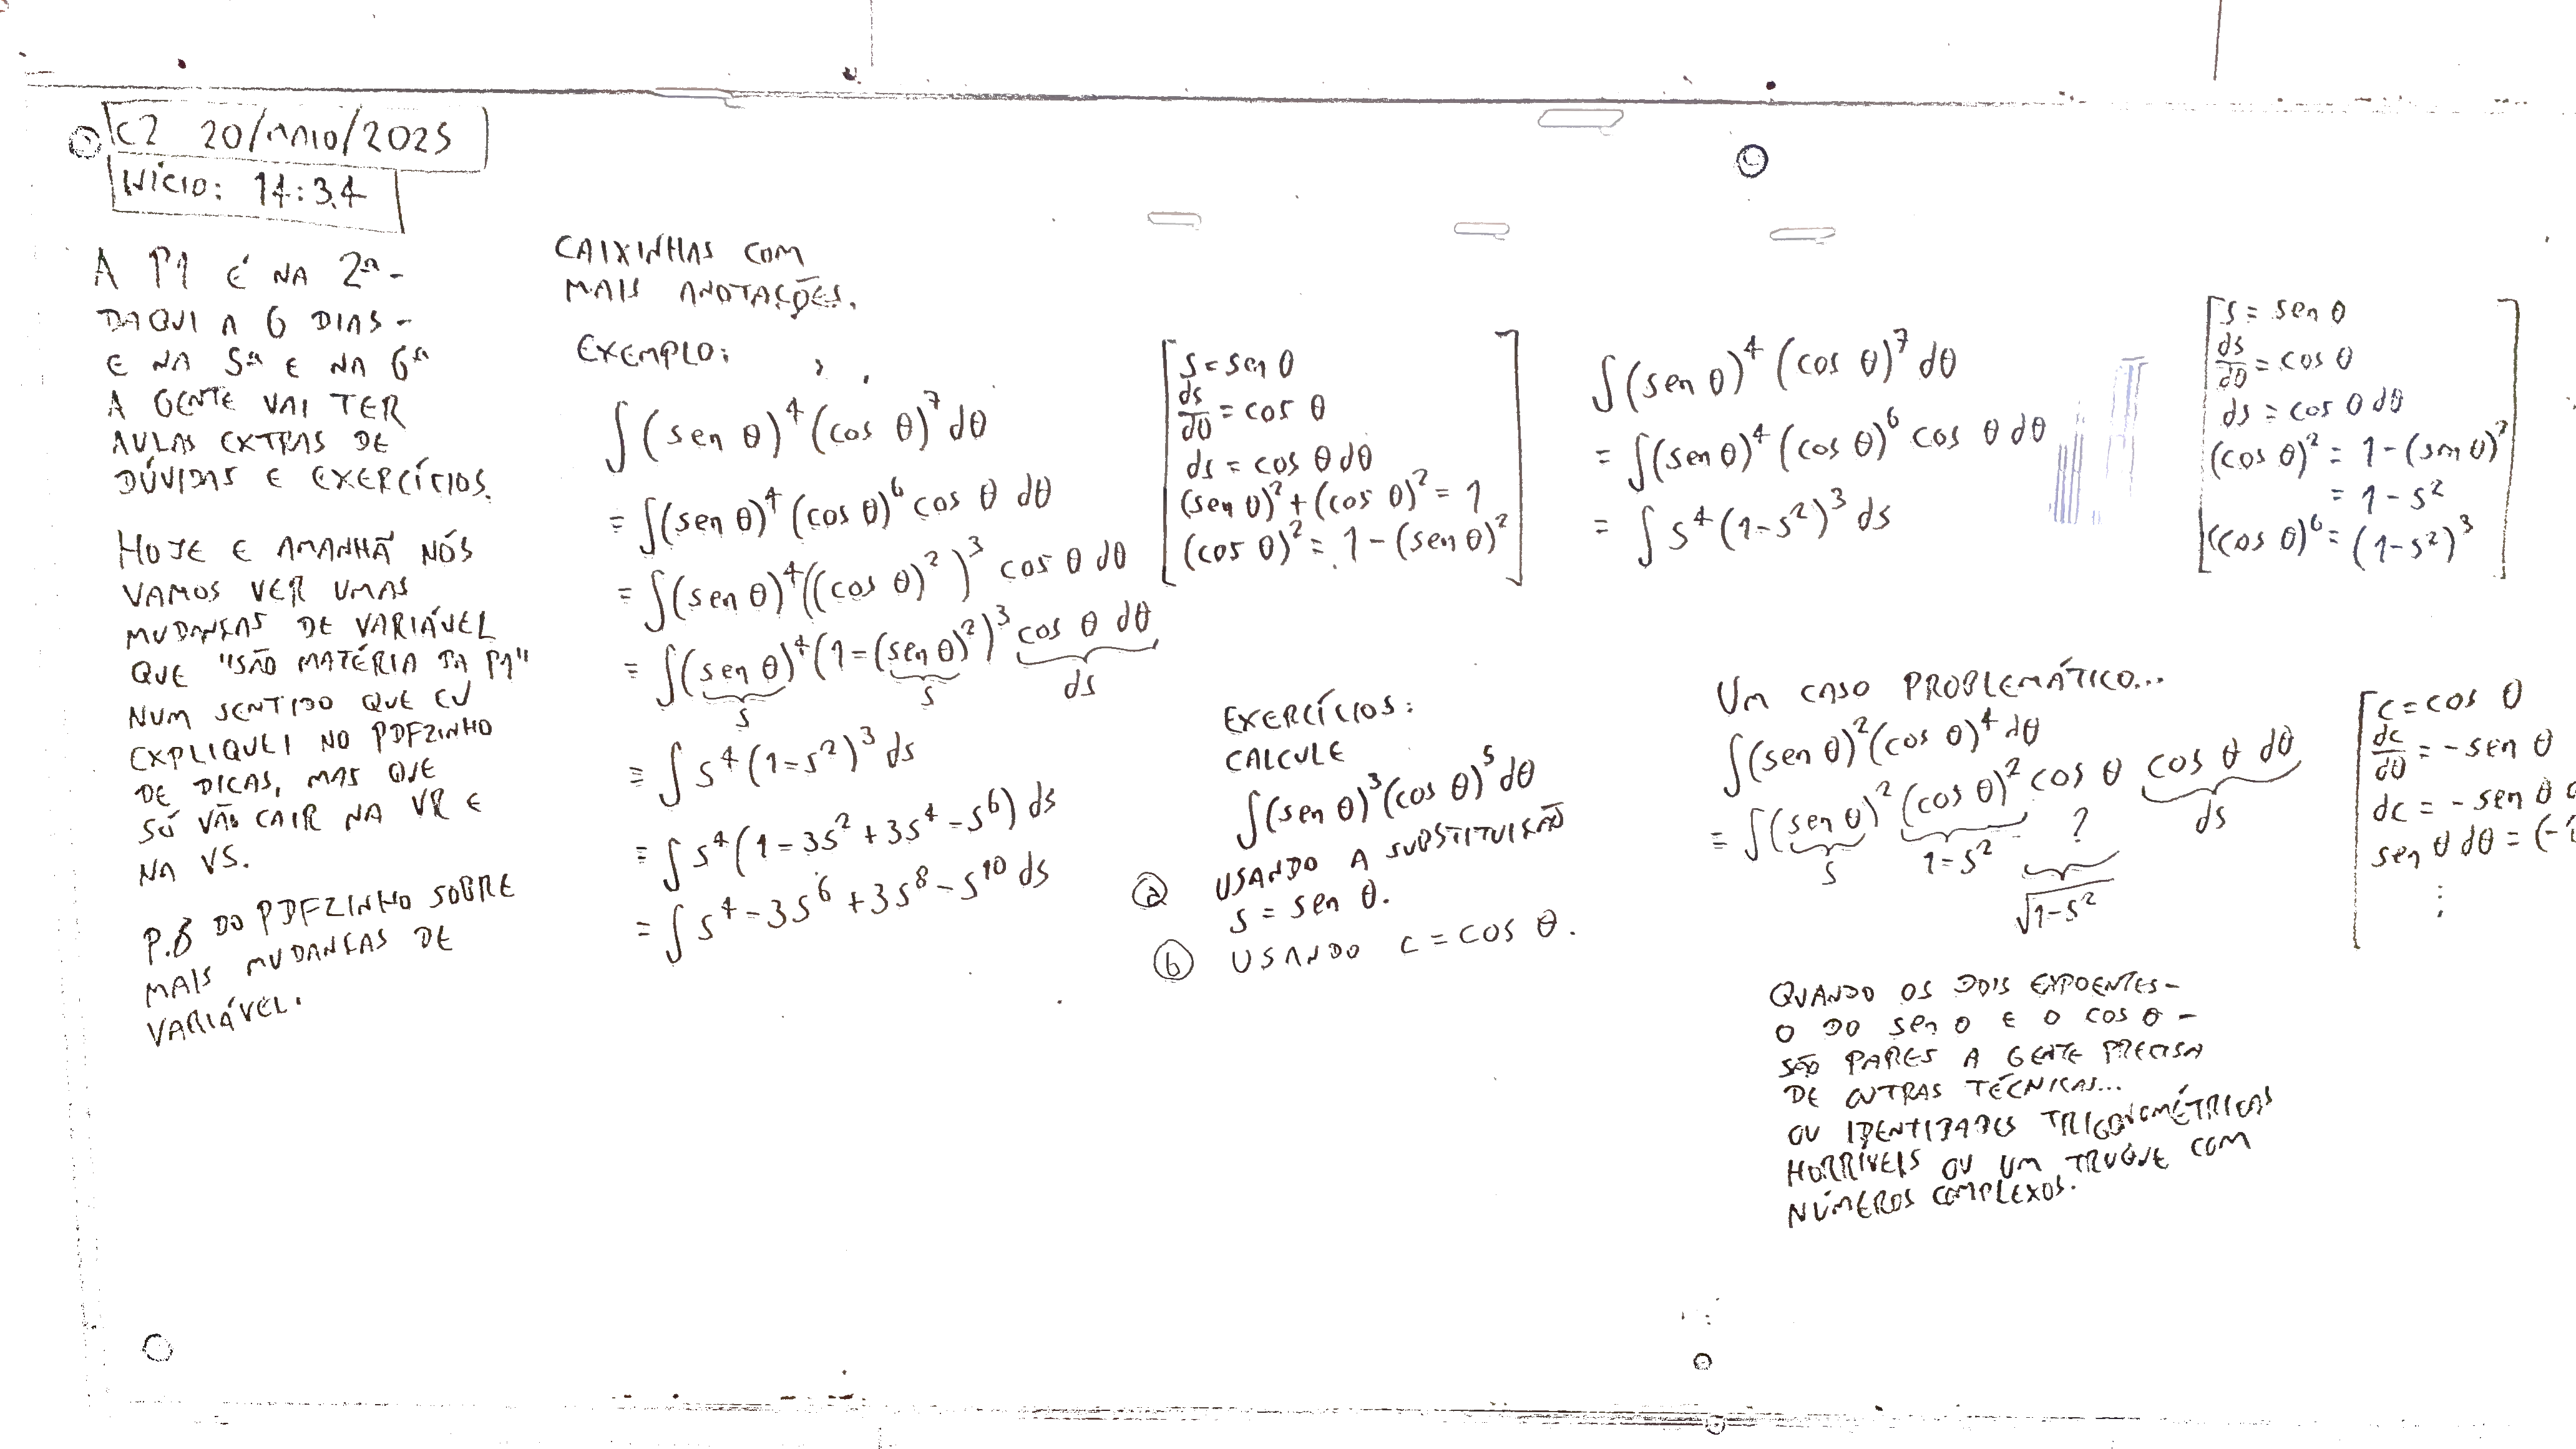 C2 20/MAIO/2025
INÍCIO: 14:34
A P1 É NA 2ª -
DAQUI A 6 DIAS -
E NA 5ª E NA 6ª
A GENTE VAI TER
AULAS EXTRAS DE
DÚVIDAS E EXERCÍCIOS.
HOJE E AMANHÃ NÓS
VAMOS VER UMAS
MUDANÇAS DE VARIÁVEL
QUE "SÃO MATÉRIA DA P1"
NUM SENTIDO QUE EU
EXPLIQUEI NO PDFZINHO
DE DICAS, MAS QUE
SÓ VÃO CAIR NA VR E
NA VS.
P.8 DO PDFZINHO SOBRE
MAIS MUDANÇAS DE
VARIÁVEL.
CAIXINHAS COM
MAIS ANOTAÇÕES.
EXEMPLO:
∫(sen θ)⁴(cos θ)⁷dθ
= ∫(sen θ)⁴(cos θ)⁶ cos θ dθ
= ∫(sen θ)⁴((cos θ)²)³ cos θ dθ
= ∫(sen θ)⁴(1-(sen θ)²)³ cos θ dθ
s s ds
= ∫ s⁴(1-s²)³ ds
= ∫ s⁴(1-3s²+3s⁴-s⁶) ds
= ∫ s⁴-3s⁶+3s⁸-s¹⁰ ds
[s = sen θ
ds/dθ = cos θ
ds = cos θ dθ
(sen θ)²+(cos θ)² = 1
(cos θ)² = 1-(sen θ)²]
EXERCÍCIOS:
CALCULE
∫(sen θ)³(cos θ)⁵dθ
a USANDO A SUBSTITUIÇÃO
s = sen θ.
b USANDO c = cos θ.
∫(sen θ)⁴(cos θ)⁷dθ
= ∫(sen θ)⁴(cos θ)⁶ cos θ dθ
= ∫ s⁴(1-s²)³ ds
[s = sen θ
ds/dθ = cos θ
ds = cos θ dθ
(cos θ)² = 1-(sen θ)²
= 1-s²
(cos θ)⁶ = (1-s²)³]
UM CASO PROBLEMÁTICO...
∫(sen θ)²(cos θ)⁴dθ
= ∫(sen θ)²(cos θ)² cos θ cos θ dθ
s 1-s² ? ds
√1-s²
[c = cos θ
dc/dθ = -sen θ
dc = -sen θ
sen θ dθ = (-1
⋮
QUANDO OS DOIS EXPOENTES -
O DO sen θ E O cos θ -
SÃO PARES A GENTE PRECISA
DE OUTRAS TÉCNICAS...
OU IDENTIDADES TRIGONOMÉTRICAS
HORRÍVEIS OU UM TRUQUE COM
NÚMEROS COMPLEXOS.